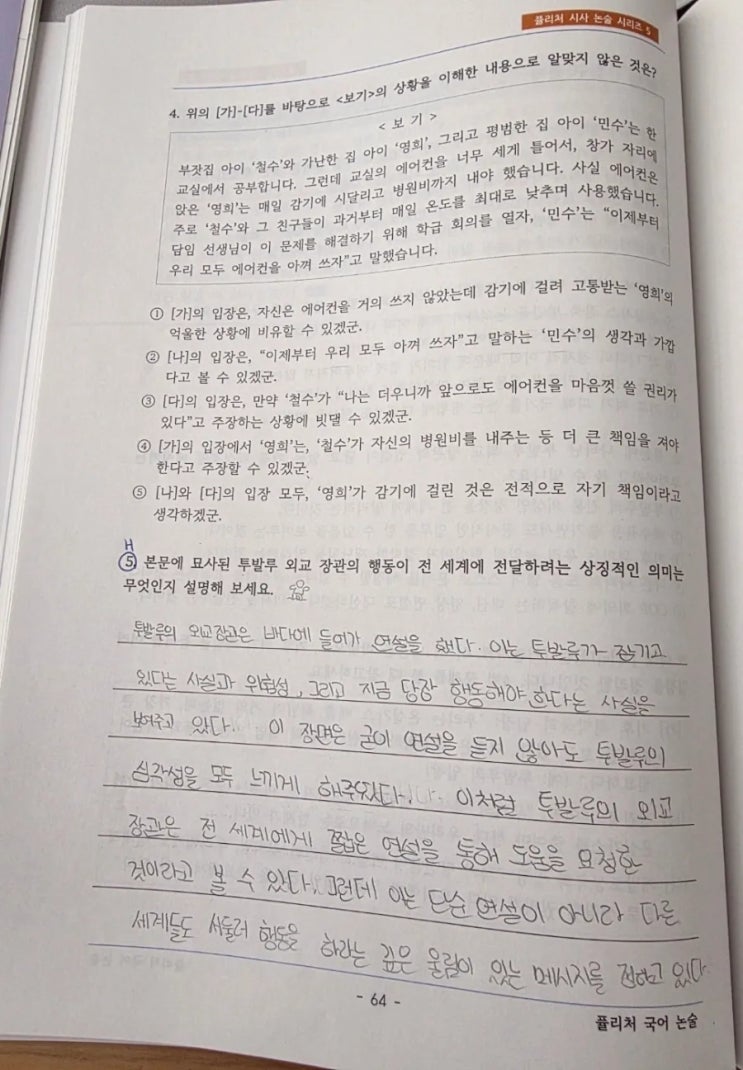 퓰리처 시사 논술 시리즈 5
4. 위의 [가]-[다]를 바탕으로 <보기>의 상황을 이해한 내용으로 알맞지 않은 것은?
< 보 기 >
부잣집 아이 '철수'와 가난한 집 아이 '영희', 그리고 평범한 집 아이 '민수'는 한
교실에서 공부합니다. 그런데 교실의 에어컨을 너무 세게 틀어서, 창가 자리에
앉은 '영희'는 매일 감기에 시달리고 병원비까지 내야 했습니다. 사실 에어컨은
주로 '철수'와 그 친구들이 과거부터 매일 온도를 최대로 낮추며 사용했습니다.
담임 선생님이 이 문제를 해결하기 위해 학급 회의를 열자, '민수'는 "이제부터
우리 모두 에어컨을 아껴 쓰자"고 말했습니다.
① [가]의 입장은, 자신은 에어컨을 거의 쓰지 않았는데 감기에 걸려 고통받는 '영희'의
억울한 상황에 비유할 수 있겠군.
② [나]의 입장은, "이제부터 우리 모두 아껴 쓰자"고 말하는 '민수'의 생각과 가깝
다고 볼 수 있겠군.
③ [다]의 입장은, 만약 '철수'가 "나는 더우니까 앞으로도 에어컨을 마음껏 쓸 권리가
있다"고 주장하는 상황에 빗댈 수 있겠군.
④ [가]의 입장에서 '영희'는, '철수'가 자신의 병원비를 내주는 등 더 큰 책임을 져야
한다고 주장할 수 있겠군.
⑤ [나]와 [다]의 입장 모두, '영희'가 감기에 걸린 것은 전적으로 자기 책임이라고
생각하겠군.
H
5. 본문에 묘사된 투발루 외교 장관의 행동이 전 세계에 전달하려는 상징적인 의미는
무엇인지 설명해 보세요.
투발루의 외교장관은 바다에 들어가 연설을 했다. 이는 투발루가 잠기고
있다는 사실과 위험성, 그리고 지금 당장 행동해야 한다는 사실을
보여주고 있다. 이 장면은 굳이 연설을 듣지 않아도 투발루의
심각성을 모두 느끼게 해주었다. 이처럼 투발루의 외교
장관은 전 세계에게 짧은 연설을 통해 도움을 요청한
것이라고 볼 수 있다. 그런데 이는 단순 연설이 아니라 다른
세계들도 서둘러 행동을 하라는 깊은 울림이 있는 메시지를 전하고 있다
- 64 -
퓰리처 국어 논술